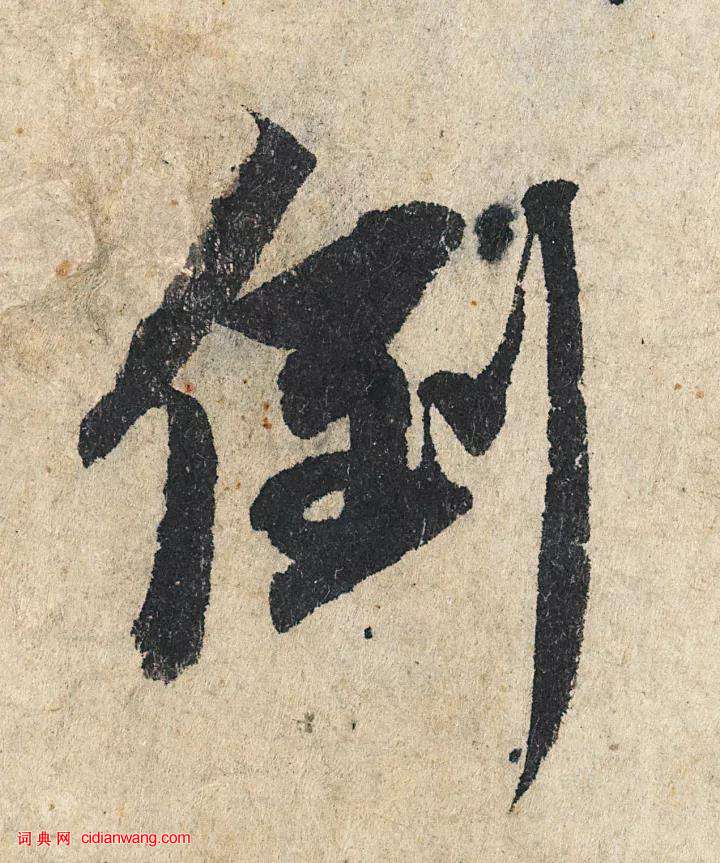 倒
词典网 cidianwang.com